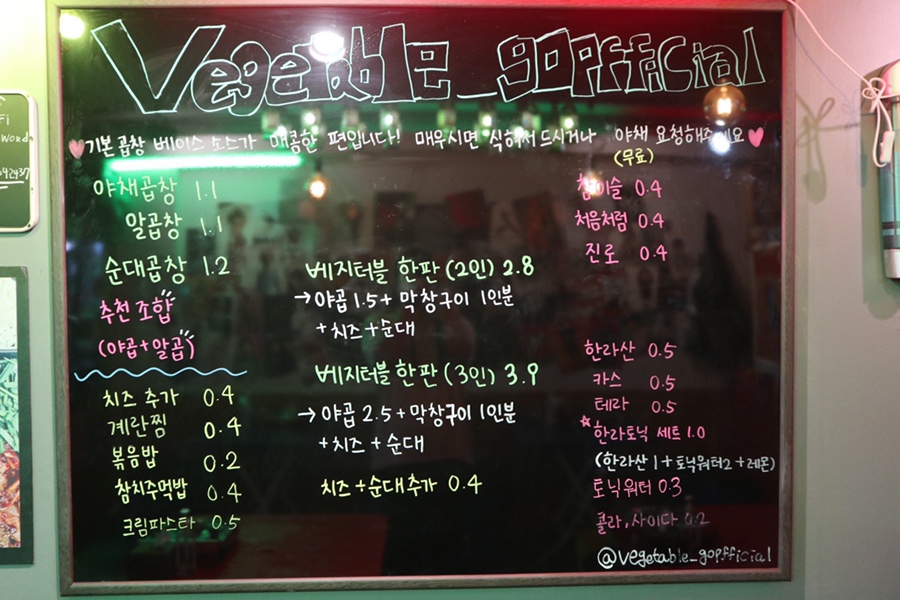 Vegetable_gopfficial
기본 곱창 베이스 소스가 매콤한 편입니다! 매우시면 식혀서 드시거나 야채 요청해주세요
(무료)
야채곱창 1.1
알곱창 1.1
순대곱창 1.2
추천 조합
(야곱+알곱)
치즈 추가 0.4
계란찜 0.4
볶음밥 0.2
참치주먹밥 0.4
크림파스타 0.5
베지터블 한판 (2인) 2.8
→야곱 1.5+막창구이 1인분
+치즈+순대
베지터블 한판 (3인) 3.9
→야곱 2.5+막창구이 1인분
+치즈+순대
치즈+순대추가 0.4
참이슬 0.4
처음처럼 0.4
진로 0.4
한라산 0.5
카스 0.5
테라 0.5
한라토닉 세트 1.0
(한라산 1+토닉워터2+레몬)
토닉워터 0.3
콜라, 사이다 0.2
@vegetable_gopfficial
Fi
word